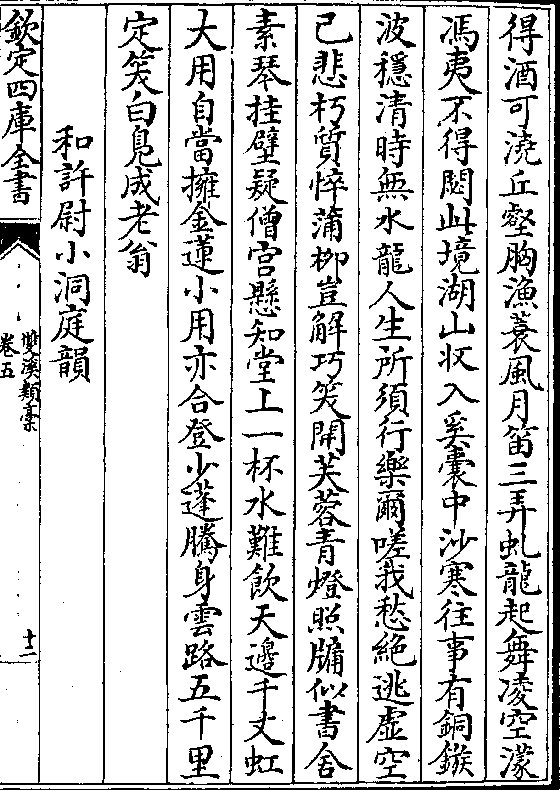 得酒可澆丘壑胸漁蓑風月笛三弄虬龍起舞凌空濛
馮夷不得閟此境湖山収入奚囊中沙寒往事有銅鏃
波穩清時無水龍人生所須行樂爾嗟我愁絶逃虛空
已悲朽質悴蒲柳豈解巧笑開芙蓉青燈照牖似書舍
素琴挂壁疑僧宫懸知堂上一杯水難飲天邊千丈虹
大用自當擁金蓮小用亦合登少蓬騰身雲路五千里
定笑白鳧成老翁
和許尉小洞庭韻
欽定四庫全書
雙溪類槀
卷五
十二